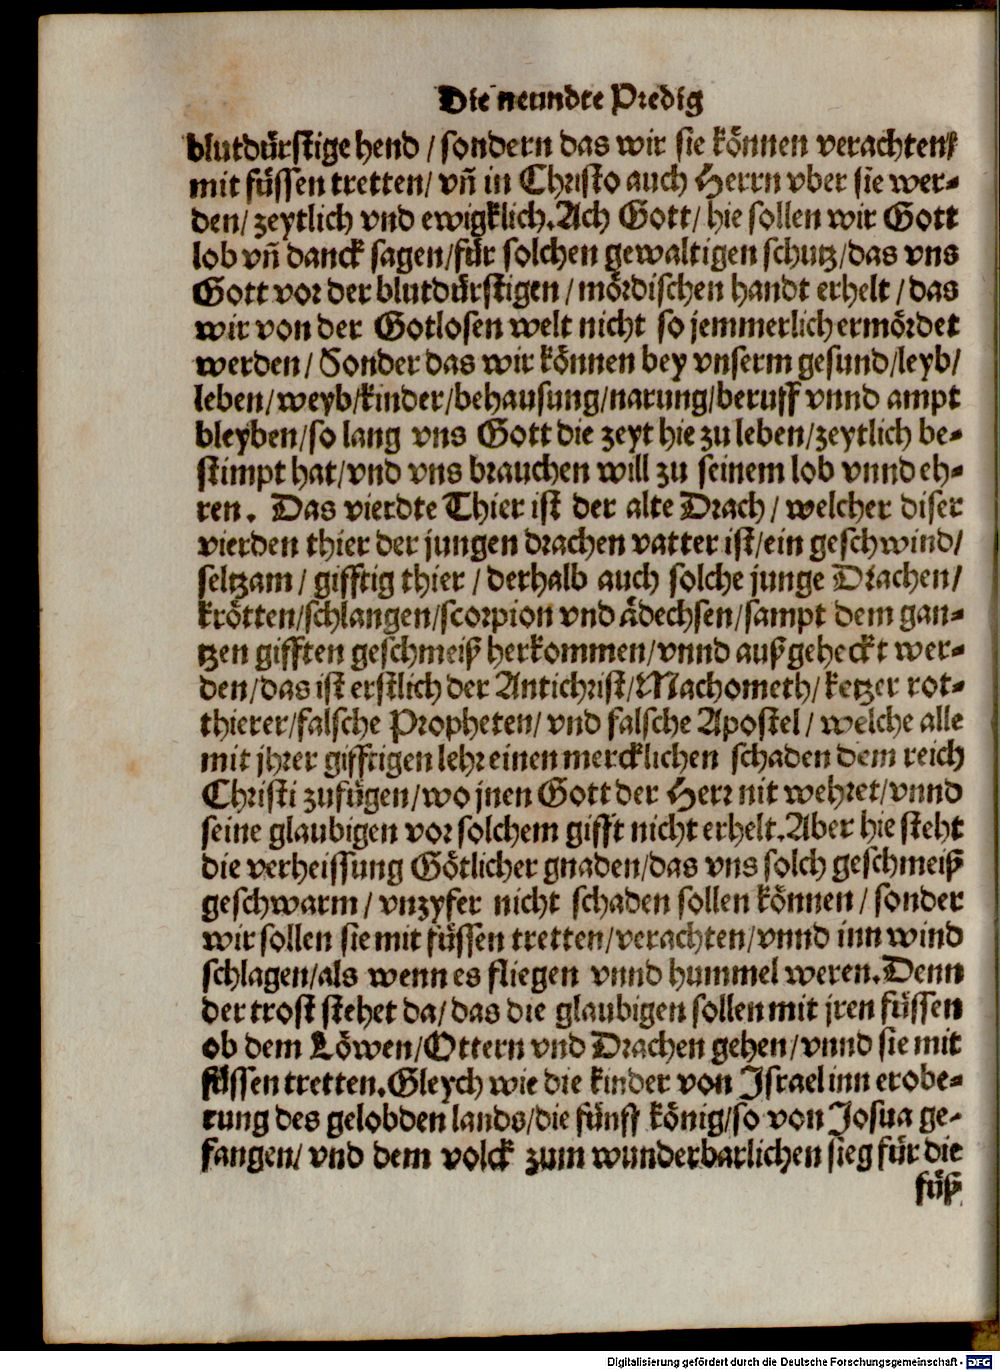 Die neundte Predig
blutdürstige hend / sondern das wir sie können verachten/
mit füssen tretten/ vñ in Christo auch Herrn vber sie wer-
den/ zeytlich vnd ewigklich. Ach Gott/ hie sollen wir Gott
lob vñ danck sagen/für solchen gewaltigen schutz/das vns
Gott vor der blutdürstigen / mördischen handt erhelt / das
wir von der Gotlosen welt nicht so jemmerlich ermördet
werden/ Sonder das wir können bey vnserm gesund/leyb/
leben/weyb/kinder/behausung/narung/beruff vnnd ampt
bleyben/so lang vns Gott die zeyt hie zu leben/zeytlich be-
stimpt hat/vnd vns brauchen will zu seinem lob vnnd eh-
ren. Das vierdte Thier ist der alte Drach / welcher diser
vierden thier der jungen drachen vatter ist/ein geschwind/
seltzam / gifftig thier / derhalb auch solche junge Drachen/
krötten/schlangen/scorpion vnd ädechsen/sampt dem gan-
tzen gifften geschmeiß herkommen/vnnd außgeheckt wer-
den/das ist erstlich der Antichrist/Machometh/ketzer rot-
thierer/falsche Propheten/ vnd falsche Apostel / welche alle
mit jhrer gifftigen lehr einen mercklichen schaden dem reich
Christi zufügen/wo jnen Gott der Herr nit wehret/vnnd
seine glaubigen vor solchem gifft nicht erhelt. Aber hie steht
die verheissung Götlicher gnaden/das vns solch geschmeiß
geschwarm / vnzyfer nicht schaden sollen können / sonder
wir sollen sie mit füssen tretten/verachten/vnnd inn wind
schlagen/als wenn es fliegen vnnd hummel weren. Denn
der trost stehet da/das die glaubigen sollen mit jren füssen
ob dem Löwen/Ottern vnd Drachen gehen/vnnd sie mit
füssen tretten. Gleych wie die kinder von Israel inn erobe-
rung des gelobden lands/die fünff könig/so von Josua ge-
fangen/ vnd dem volck zum wunderbarlichen sieg für die
füß
Digitalisierung gefördert durch die Deutsche Forschungsgemeinschaft - DFG